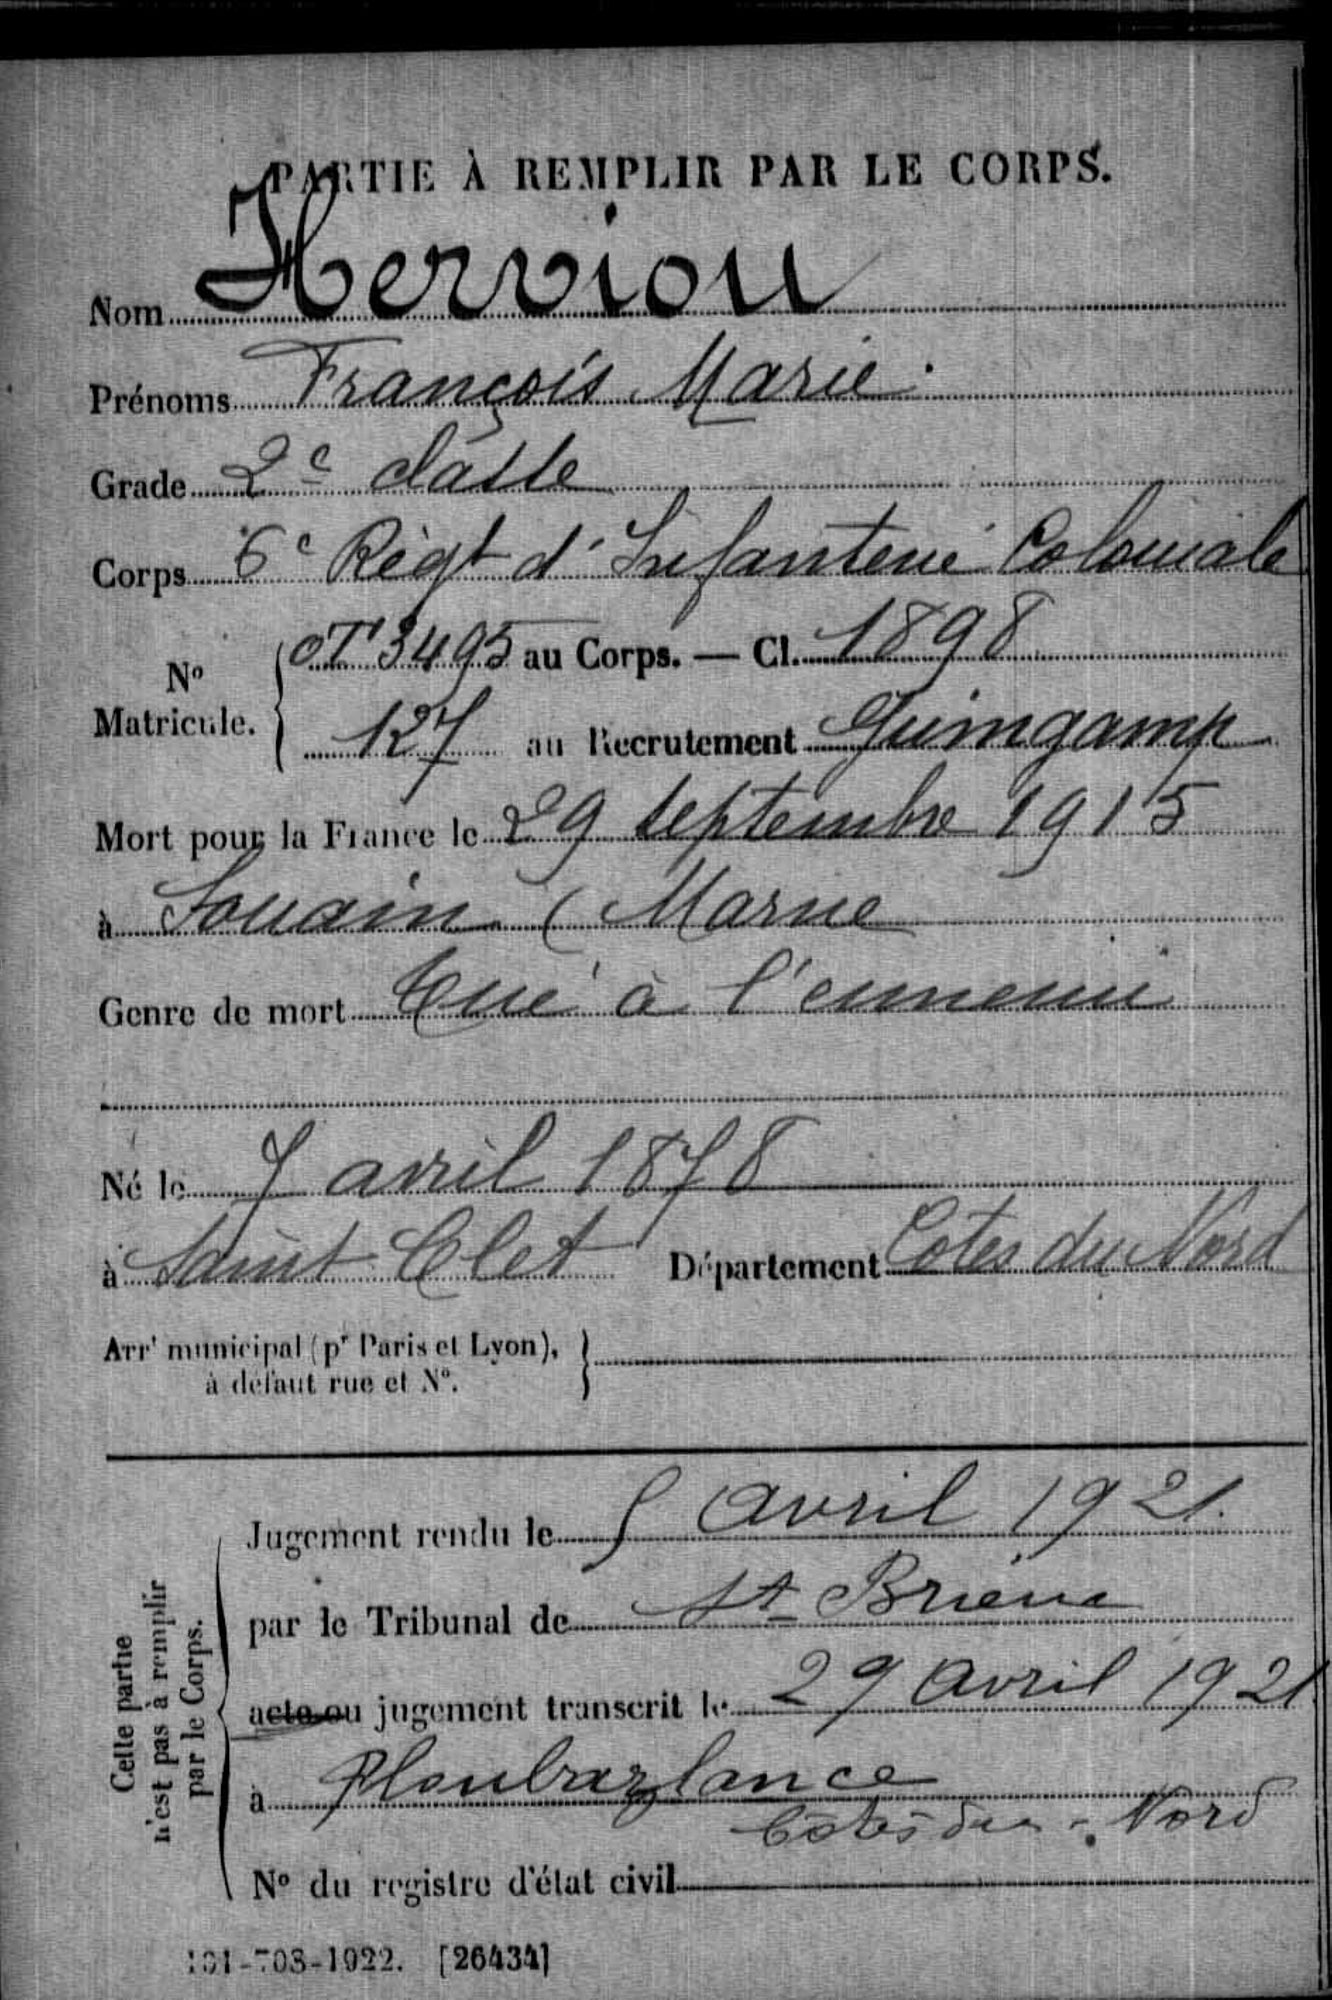 PARTIE À REMPLIR PAR LE CORPS.
Nom Herviou
Prénoms François Marie
Grade 2e classe
Corps 6e Régt d'Infanterie Coloniale
No Matricule. { OT 3495 au Corps. — Cl. 1898
127 au Recrutement Guingamp
Mort pour la France le 29 septembre 1915
à Souain (Marne
Genre de mort Tué à l'ennemi
Né le 7 avril 1878
à Saint Clet Département Cotes du Nord
Arrt municipal (pr Paris et Lyon), }
à défaut rue et No.
Celle partie
n'est pas à remplir
par le Corps.
Jugement rendu le 5 Avril 1921.
par le Tribunal de St Brieuc
acte ou jugement transcrit le 29 Avril 1921
à Ploubazlance
Côtes du Nord
No du registre d'état civil
101-708-1922. [26434]